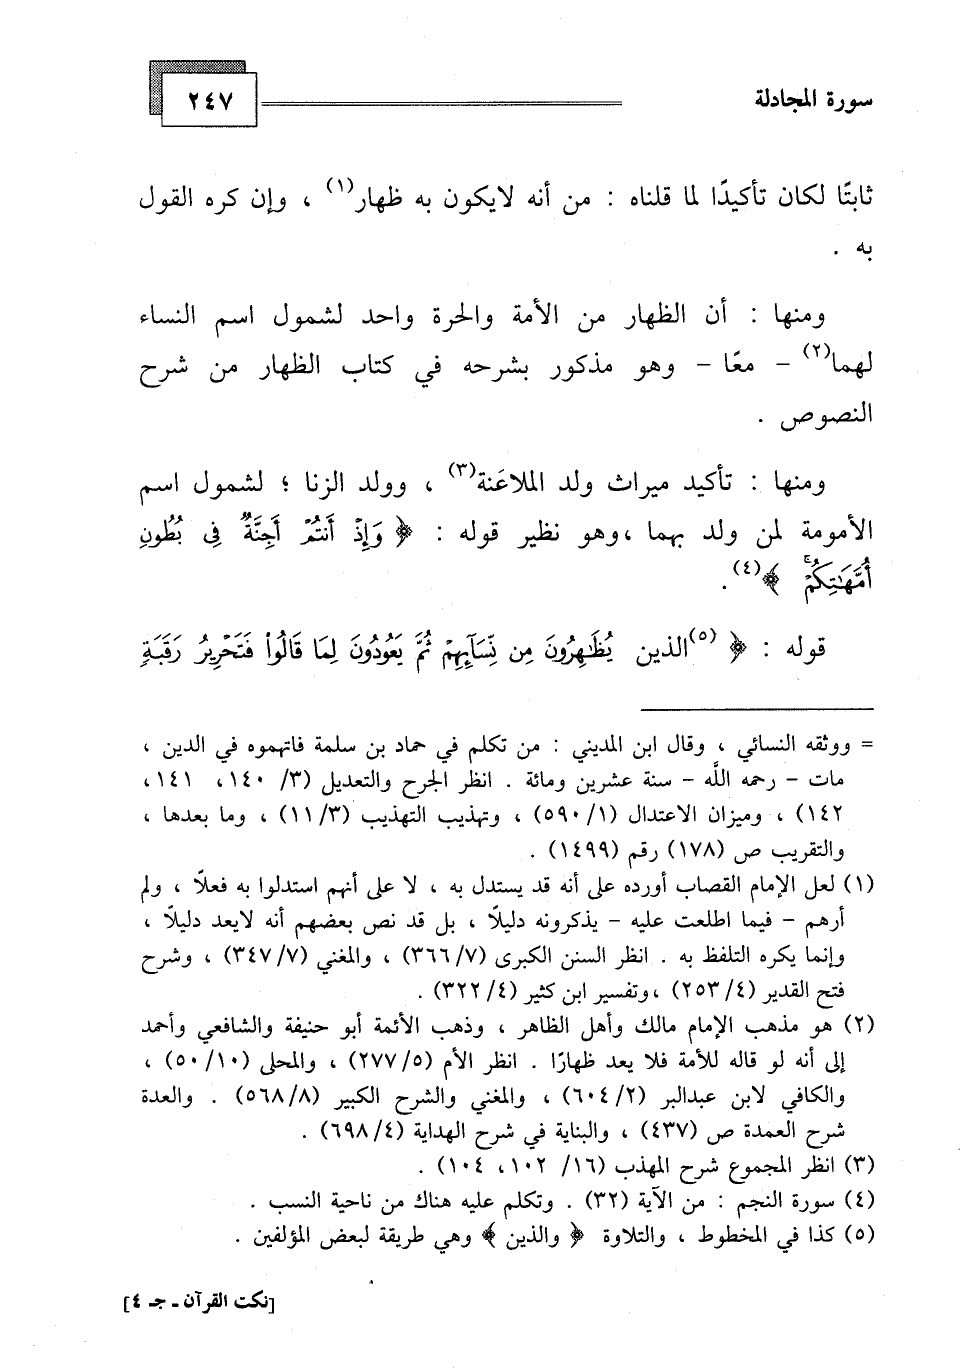 سورة المجادلة ٢٤٧
ثابتًا لكان تأكيدًا لما قلناه : من أنه لايكون به ظهار(١) ، وإن كره القول
به .
ومنها : أن الظهار من الأمة والحرة واحد لشمول اسم النساء
لهما(٢) – معًا – وهو مذكور بشرحه في كتاب الظهار من شرح
النصوص .
ومنها : تأكيد ميراث ولد الملاعَنة(٣) ، وولد الزنا ؛ لشمول اسم
الأمومة لمن ولد بهما ،وهو نظير قوله : ﴿ وَإِذْ أَنتُمْ أَجِنَّةٌ فِي بُطُونِ
أُمَّهَٰتِكُمْ ۖ ﴾(٤) .
قوله : ﴿ (٥)الذين يُظَٰهِرُونَ مِن نِّسَآئِهِمْ ثُمَّ يَعُودُونَ لِمَا قَالُواْ فَتَحْرِيرُ رَقَبَةٍ
= ووثقه النسائي ، وقال ابن المديني : من تكلم في حماد بن سلمة فاتهموه في الدين ،
مات – رحمه اللَّه – سنة عشرين ومائة . انظر الجرح والتعديل (٣/ ١٤٠، ١٤١،
١٤٢) ، وميزان الاعتدال (١/ ٥٩٠) ، وتهذيب التهذيب (٣/ ١١) ، وما بعدها ،
والتقريب ص (١٧٨) رقم (١٤٩٩) .
(١) لعل الإمام القصاب أورده على أنه قد يستدل به ، لا على أنهم استدلوا به فعلاً ، ولم
أرهم – فيما اطلعت عليه – يذكرونه دليلًا ، بل قد نص بعضهم أنه لايعد دليلًا ،
وإنما يكره التلفظ به . انظر السنن الكبرى (٧/ ٣٦٦) ، والمغني (٧/ ٣٤٧) ، وشرح
فتح القدير (٤/ ٢٥٣) ،وتفسير ابن كثير (٤/ ٣٢٢) .
(٢) هو مذهب الإمام مالك وأهل الظاهر ، وذهب الأئمة أبو حنيفة والشافعي وأحمد
إلى أنه لو قاله للأمة فلا يعد ظهارًا . انظر الأم (٥/ ٢٧٧) ، والمحلى (١٠/ ٥٠) ،
والكافي لابن عبدالبر (٢/ ٦٠٤) ، والمغني والشرح الكبير (٨/ ٥٦٨) . والعدة
شرح العمدة ص (٤٣٧) ، والبناية في شرح الهداية (٤/ ٦٩٨) .
(٣) انظر المجموع شرح المهذب (١٦/ ١٠٢، ١٠٤) .
(٤) سورة النجم : من الآية (٣٢) . وتكلم عليه هناك من ناحية النسب .
(٥) كذا في المخطوط ، والتلاوة ﴿ والذين ﴾ وهي طريقة لبعض المؤلفين .
[نكت القرآن ـ جـ ٤]